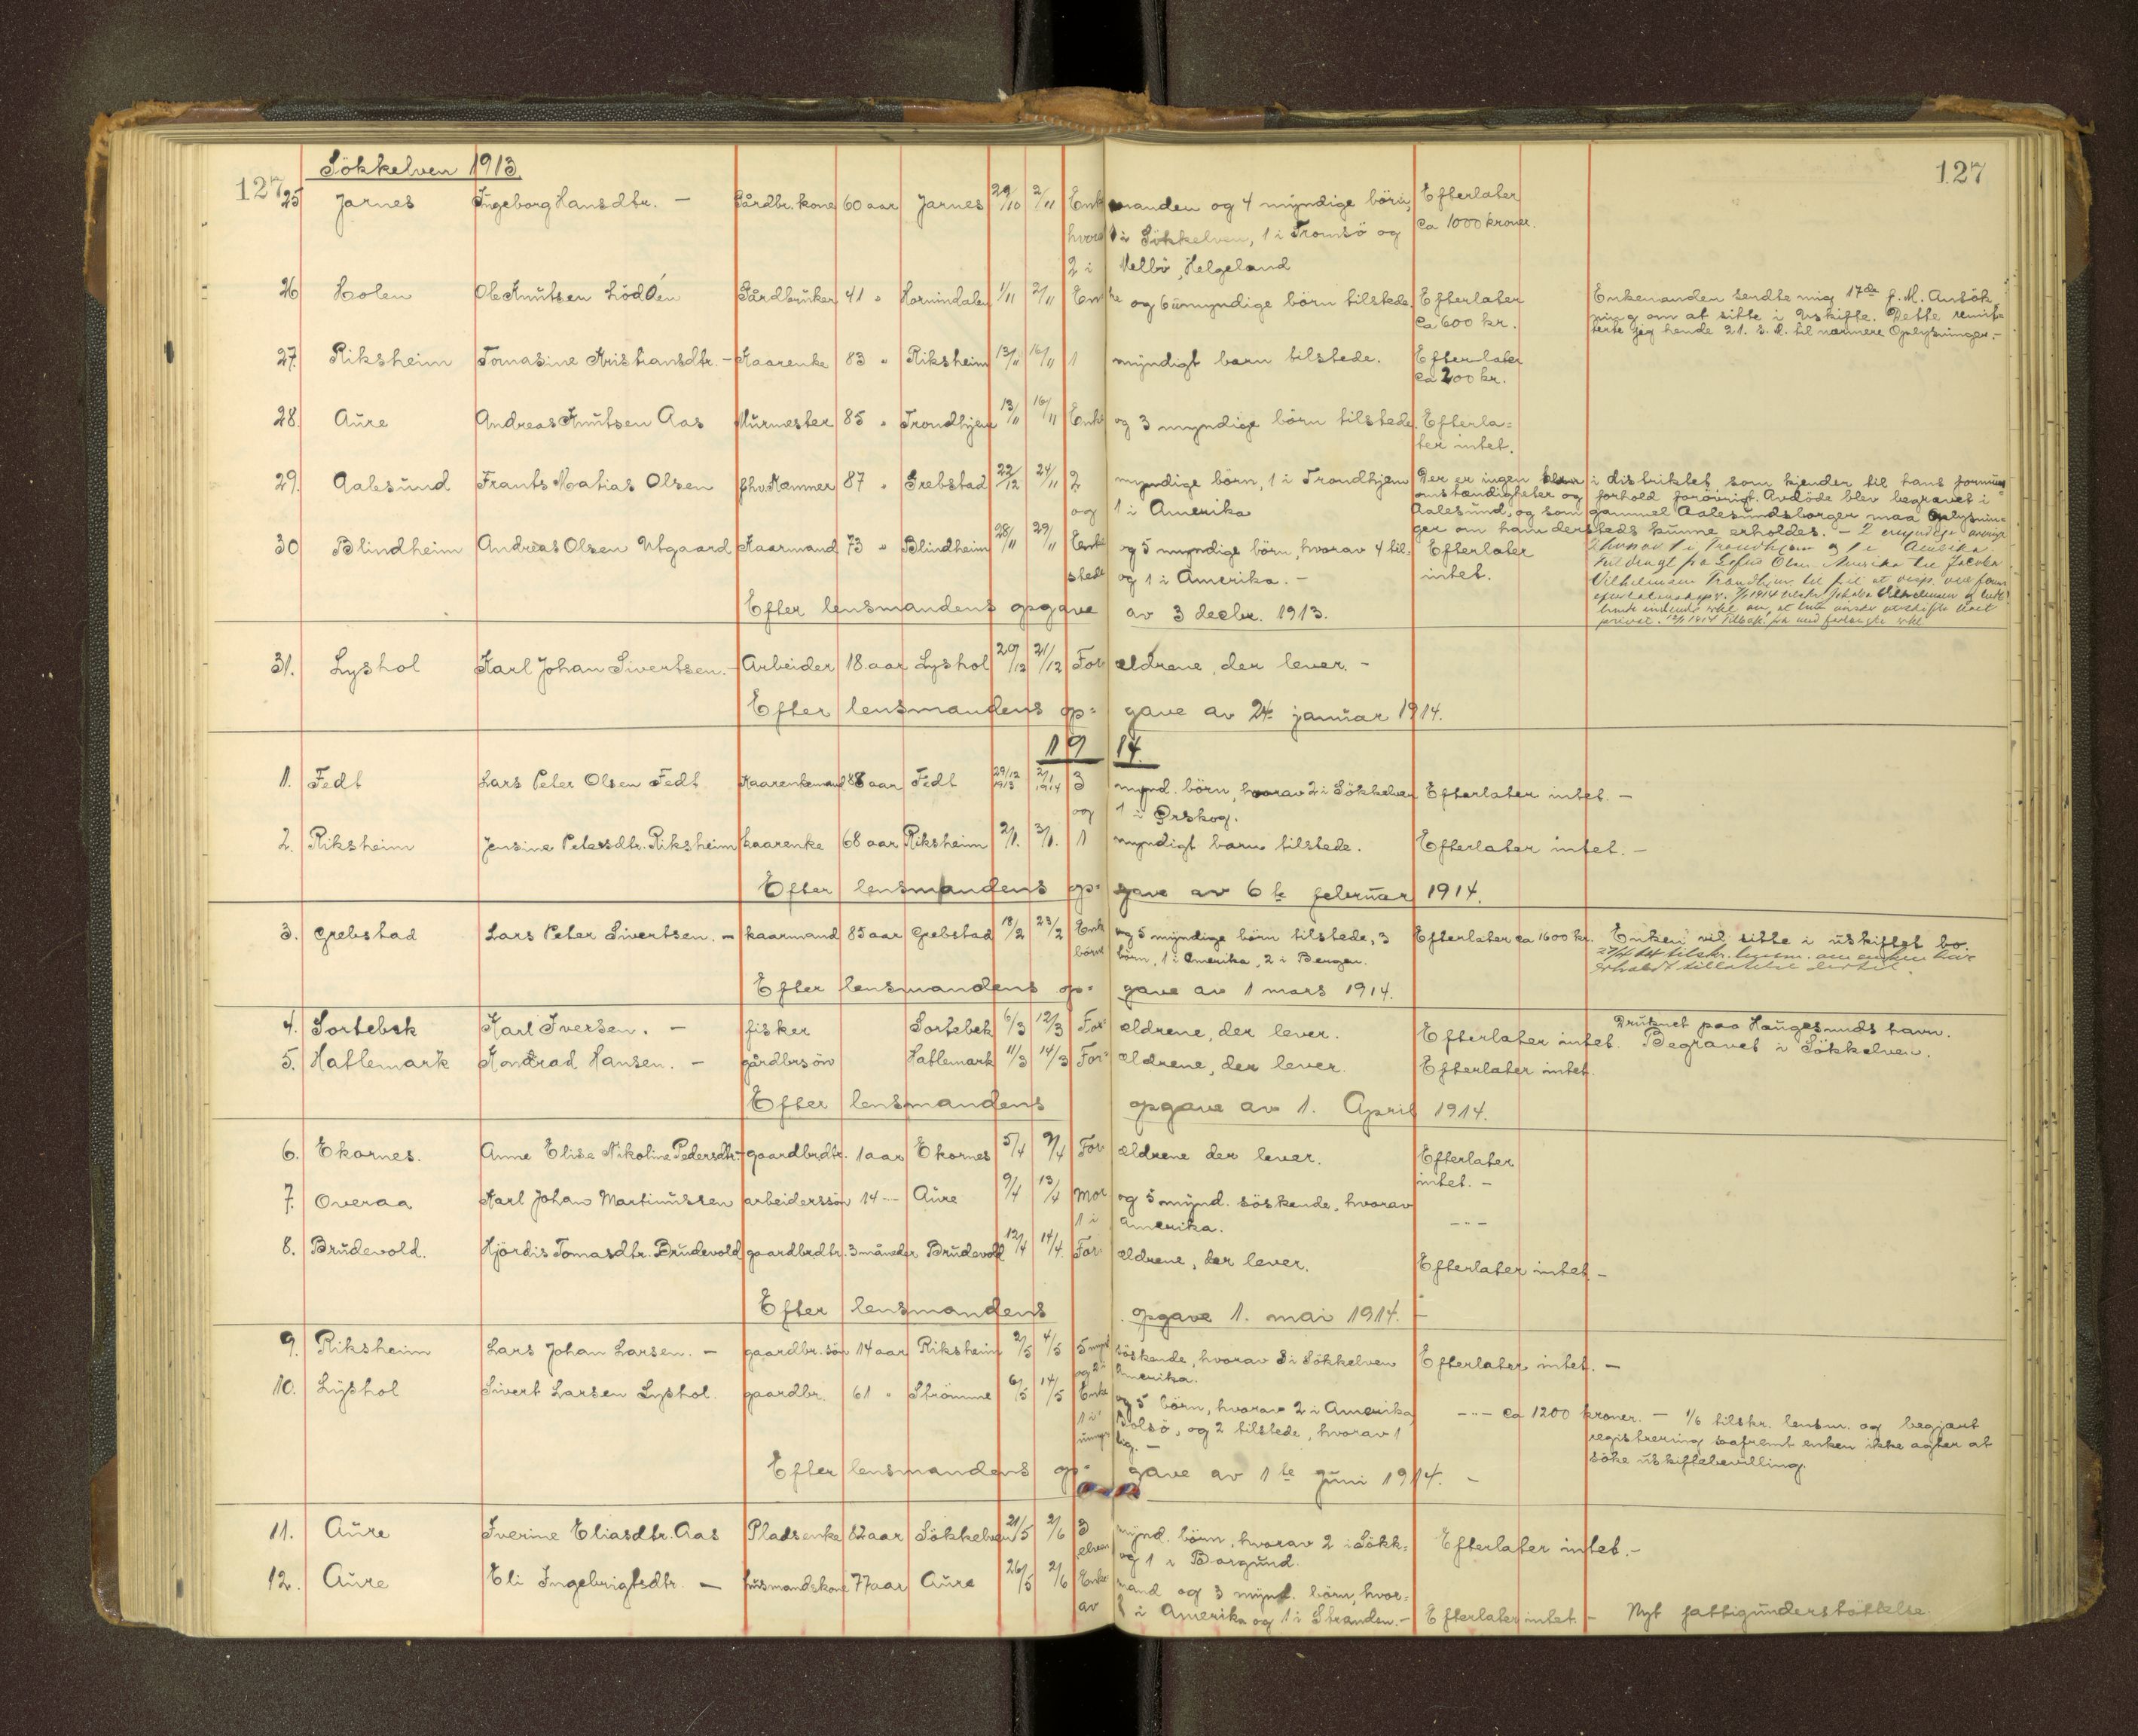 127
Sökkelven 1913
127
25 Jarnes Ingeborg Hansdtr. - Gårdbr. kone 60 aar Jarnes 29/10 2/11 Enkemanden og 4 myndige börn, Efterlater
hvorav 1 i Sökkelven, 1 i Tromsö og ca 1000 kroner.
2 i Melbö, Helgeland
26 Holen Ole Knutsen Lödöen Gårdbruker 41 " Hornindalen 1/11 2/11 Enke og 6 umyndige börn tilstede. Efterlater
ca 600 kr.
Enkemanden sendte mig 17de f. M. Ansök=
ning om at sitte i Uskifte. Dette remit=
terte jeg hende 21. s. d. til nærmere Oplysninger.-
27. Riksheim Tomasine Kristiansdtr. - Kaarenke 83 " Riksheim 13/11 16/11 1 myndigt barn tilstede. Efterlater
ca 200 kr.
28. Aure Andreas Knutsen Aas Murmester 85 " Trondhjem 13/11 16/11 Enke og 3 myndige börn tilstede. Efterla=
ter intet.
29. Aalesund Frants Matias Olsen fhv. Kammer 87 " Grebstad 22/12 24/11 2 myndige börn, 1 i Trondhjem
og 1 i Amerika
Der er ingen i distriktet som kjender til hans formues=
omstændigheter og forhold forövrigt. Avdöde blev begravet i
Aalesund, og som gammel Aalesundsborger maa Oplysnin=
ger om ham dersteds kunne erholdes. - 2 myndige arvinger
hvorav 1 i Trondhjem og 1 i Amerika.
30 Blindheim Andreas Olsen Utgaard Kaarmand 73 " Blindheim 28/11 29/11 Enke og 5 myndige börn, hvorav 4 til= Efterlater
stede og 1 i Amerika. - intet.
Efter lensmandens opgave av 3 decbr. 1913.
31. Lyshol Karl Johan Sivertsen. - Arbeider 18 aar Lyshol 20/12 21/12 Forældrene, der lever. -
Efter lensmandens op= gave av 24. januar 1914.
1914.
1. Fedt Lars Peter Olsen Fedt Kaarenkemand 88 aar Fedt 29/12 1913 2/1 1914 3 mynd. börn, hvorav 2 i Sökkelven Efterlater intet. -
og 1 i Ørskog.
2. Riksheim Jensine Petersdtr. Riksheim kaarenke 68 aar Riksheim 2/1. 3/1. 1 myndigt barn tilstede. Efterlater intet. -
Efter lensmandens op= gave av 6te februar 1914.
3. Grebstad Lars Peter Sivertsen. - kaarmand 85 aar Grebstad 18/2 23/2 Enke og 5 myndige börn tilstede, 3 Efterlater ca 1600 kr. Enken vil sitte i uskiftet bo.
börne börn, 1 i Amerika, 2 i Bergen.
27/4 14 tilskr. lensm. om enken har
erholdt tillatelse dertil.
Efter lensmandens op= gave av 1 mars 1914.
4. Sortebek Karl Iversen. - fisker Sortebek 6/3 12/3 Forældrene, der lever. Efterlater intet. Druknet paa Haugesunds havn.
Begravet i Sökkelven.
5. Hatlemark Kondrad Hansen. - gårdbrsön Hatlemark 11/3 14/3 Forældrene, der lever. Efterlater intet.
Efter lensmandens opgave av 1. April 1914.
6. Ekornes. Anne Elise Nikoline Pedersdtr.- gaardbrdtr. 1 aar Ekornes 5/4 9/4 Forældrene der lever. Efterlater
intet. -
7. Overaa Karl Johan Martinussen arbeiderssön 14 -"- Aure 9/4 13/4 Mor og 5 mynd. söskende, hvorav -"-
1 i Amerika.
8. Brudevold. Hjördis Tomasdtr. Brudevold gaardbrdtr. 3 måneder Brudevold 12/4 14/4. Forældrene, der lever. Efterlater intet -
Efter lensmandens opgave 1. mai 1914.
9. Riksheim Lars Johan Larsen. - gaardbr. sön 14 aar Riksheim 2/5 4/5 5 mynd söskende, hvorav 3 i Sökkelven Efterlater intet. -
og 2 i Amerika.
10. Lyshol Sivert Larsen Lyshol. gaardbr. 61 " Strömme 6/5 14/5 Enke og 5 börn, hvorav 2 i Amerika -"- ca 1200 kroner. - 1/6 tilskr. lensm. og begjært
1 i Bolsö, og 2 tilstede, hvorav 1 registrering saafremt enken ikke agter at
umyndig. - söke uskiftebevilling.
Efter lensmandens op= gave av 1ste juni 1914. -
11. Aure Iverine Eliasdtr. Aas Pladsenke 82 aar Sökkelven 21/5 2/6 3 mynd. börn, hvorav 2 i Sökk= Efterlater intet.-
elven og 1 i Borgund.
12. Aure Eli Ingebrigtsdtr. - husmandskone 77 aar Aure 26/5 2/6 Enkemand og 3 mynd. börn, hvor=
av 1 i Amerika og 1 i Stranden. - Efterlater intet. - Nyt fattigunderstöttelse.